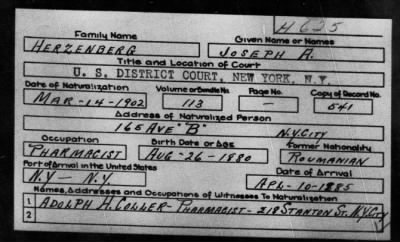 H 625
Family Name Given Name or Names
HERZENBERG JOSEPH A.
Title and Location of Court
U. S. DISTRICT COURT, NEW YORK, N.Y.
Date of Naturalization Volume or Bundle No. Page No. Copy of Record No.
MAR-14-1902 113 — 541
Address of Naturalized Person
165 AVE "B" N.Y.CITY
Occupation Birth Date or Age Former Nationality
PHARMACIST AUG-26-1880 ROUMANIAN
Port of Arrival in the United States Date of Arrival
N.Y — N.Y APL-10-1885
Names, Addresses and Occupations of Witnesses To Naturalization
1 ADOLPH H. COLLER-PHARMACIST-218 STANTON ST. N.Y.CITY
2